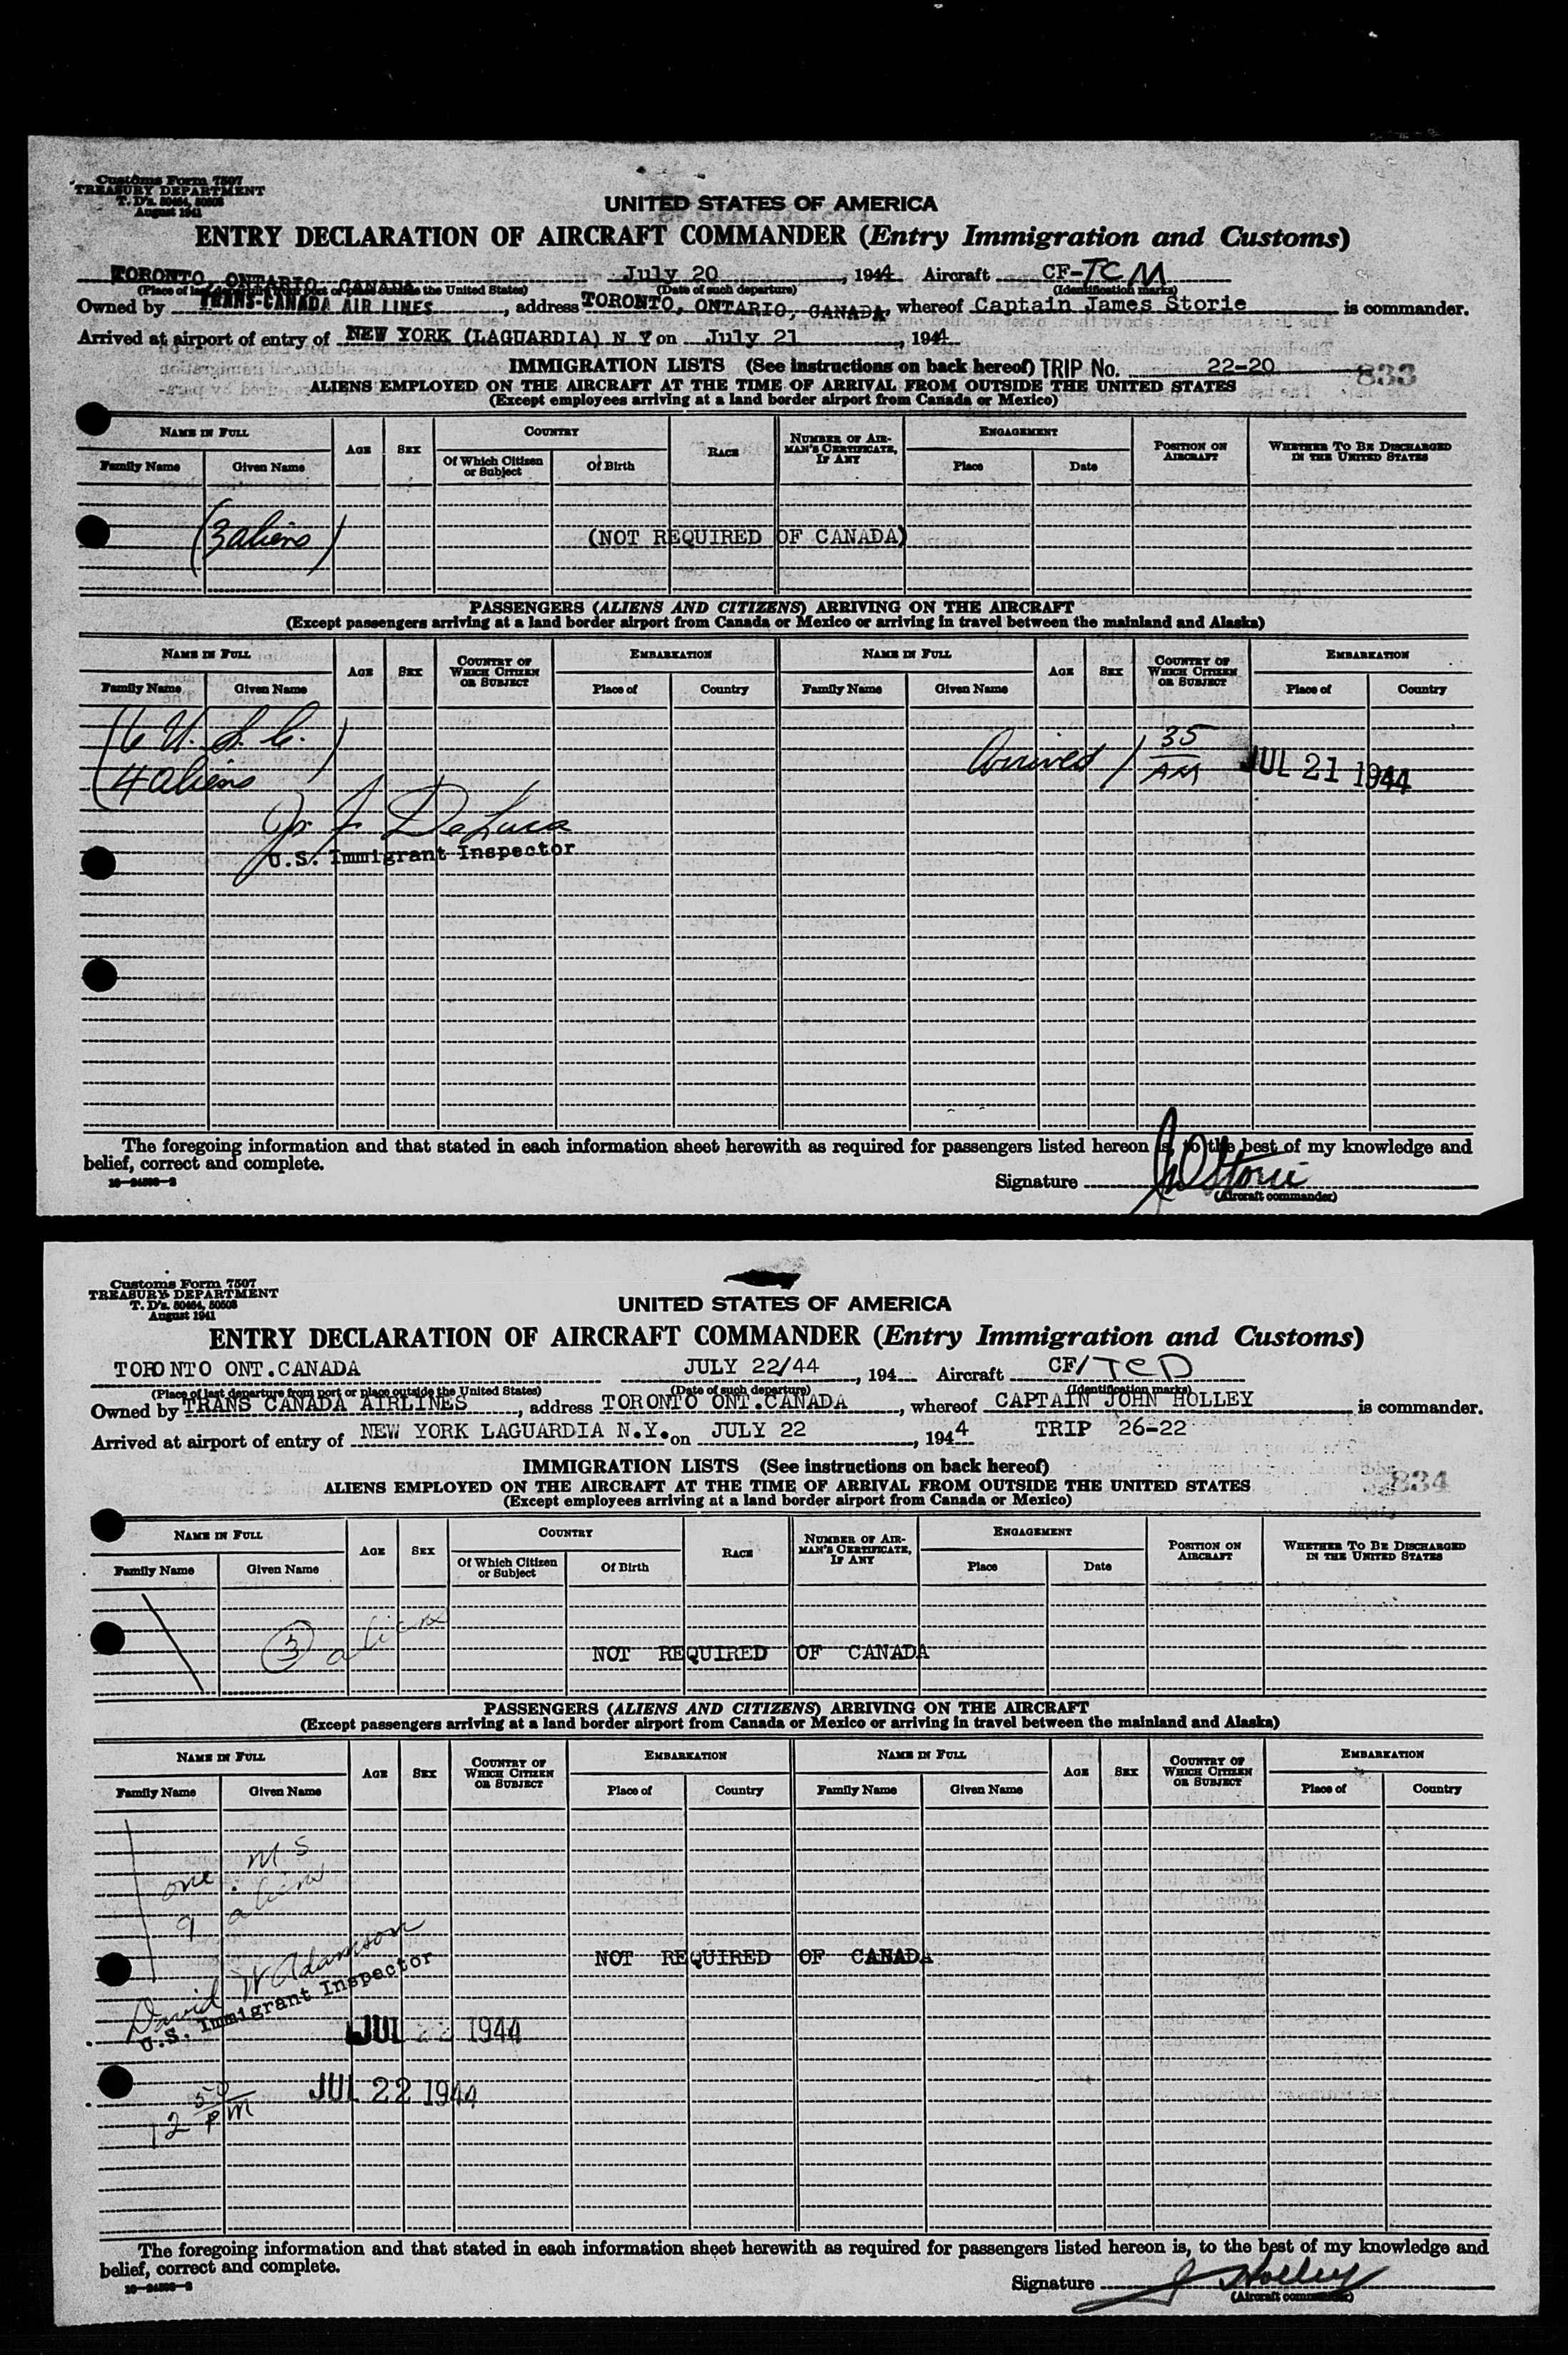 Customs Form 7507
TREASURY DEPARTMENT
T. D's. 50464, 50503
August 1941
UNITED STATES OF AMERICA
ENTRY DECLARATION OF AIRCRAFT COMMANDER (Entry Immigration and Customs)
TORONTO, ONTARIO, CANADA July 20, 1944 Aircraft CF-TCM
(Place of last departure from port or place outside the United States) (Date of such departure) (Identification marks)
Owned by TRANS-CANADA AIR LINES, address TORONTO, ONTARIO, CANADA, whereof Captain James Storie is commander.
Arrived at airport of entry of NEW YORK (LAGUARDIA) N Y on July 21, 1944
IMMIGRATION LISTS (See instructions on back hereof) TRIP No. 22-20
833
ALIENS EMPLOYED ON THE AIRCRAFT AT THE TIME OF ARRIVAL FROM OUTSIDE THE UNITED STATES
(Except employees arriving at a land border airport from Canada or Mexico)
NAME IN FULL AGE SEX COUNTRY RACE NUMBER OF AIRMAN'S CERTIFICATE, IF ANY ENGAGEMENT POSITION ON AIRCRAFT WHETHER TO BE DISCHARGED IN THE UNITED STATES
Family Name Given Name Of Which Citizen or Subject Of Birth Place Date
(3 aliens) (NOT REQUIRED OF CANADA)
PASSENGERS (ALIENS AND CITIZENS) ARRIVING ON THE AIRCRAFT
(Except passengers arriving at a land border airport from Canada or Mexico or arriving in travel between the mainland and Alaska)
NAME IN FULL AGE SEX COUNTRY OF WHICH CITIZEN OR SUBJECT EMBARKATION NAME IN FULL AGE SEX COUNTRY OF WHICH CITIZEN OR SUBJECT EMBARKATION
Family Name Given Name Place of Country Family Name Given Name Place of Country
(6 U. S. C.
4 aliens) Arrived 1 35 AM JUL 21 1944
J. DeLuca
U.S. Immigrant Inspector
The foregoing information and that stated in each information sheet herewith as required for passengers listed hereon is, to the best of my knowledge and
belief, correct and complete.
Signature Storie
(Aircraft commander)
Customs Form 7507
TREASURY DEPARTMENT
T. D's. 50464, 50503
August 1941
UNITED STATES OF AMERICA
ENTRY DECLARATION OF AIRCRAFT COMMANDER (Entry Immigration and Customs)
TORONTO ONT.CANADA JULY 22/44, 194 Aircraft CF/TCD
(Place of last departure from port or place outside the United States) (Date of such departure) (Identification marks)
Owned by TRANS CANADA AIRLINES, address TORONTO ONT.CANADA, whereof CAPTAIN JOHN HOLLEY is commander.
Arrived at airport of entry of NEW YORK LAGUARDIA N.Y. on JULY 22, 1944 TRIP 26-22
IMMIGRATION LISTS (See instructions on back hereof)
834
ALIENS EMPLOYED ON THE AIRCRAFT AT THE TIME OF ARRIVAL FROM OUTSIDE THE UNITED STATES
(Except employees arriving at a land border airport from Canada or Mexico)
NAME IN FULL AGE SEX COUNTRY RACE NUMBER OF AIRMAN'S CERTIFICATE, IF ANY ENGAGEMENT POSITION ON AIRCRAFT WHETHER TO BE DISCHARGED IN THE UNITED STATES
Family Name Given Name Of Which Citizen or Subject Of Birth Place Date
3 aliens
NOT REQUIRED OF CANADA
PASSENGERS (ALIENS AND CITIZENS) ARRIVING ON THE AIRCRAFT
(Except passengers arriving at a land border airport from Canada or Mexico or arriving in travel between the mainland and Alaska)
NAME IN FULL AGE SEX COUNTRY OF WHICH CITIZEN OR SUBJECT EMBARKATION NAME IN FULL AGE SEX COUNTRY OF WHICH CITIZEN OR SUBJECT EMBARKATION
Family Name Given Name Place of Country Family Name Given Name Place of Country
one
9 aliens
NOT REQUIRED OF CANADA
David W Adamson
U.S. Immigrant Inspector
JUL 22 1944
JUL 22 1944
12 50 PM
The foregoing information and that stated in each information sheet herewith as required for passengers listed hereon is, to the best of my knowledge and
belief, correct and complete.
Signature J Holley
(Aircraft commander)